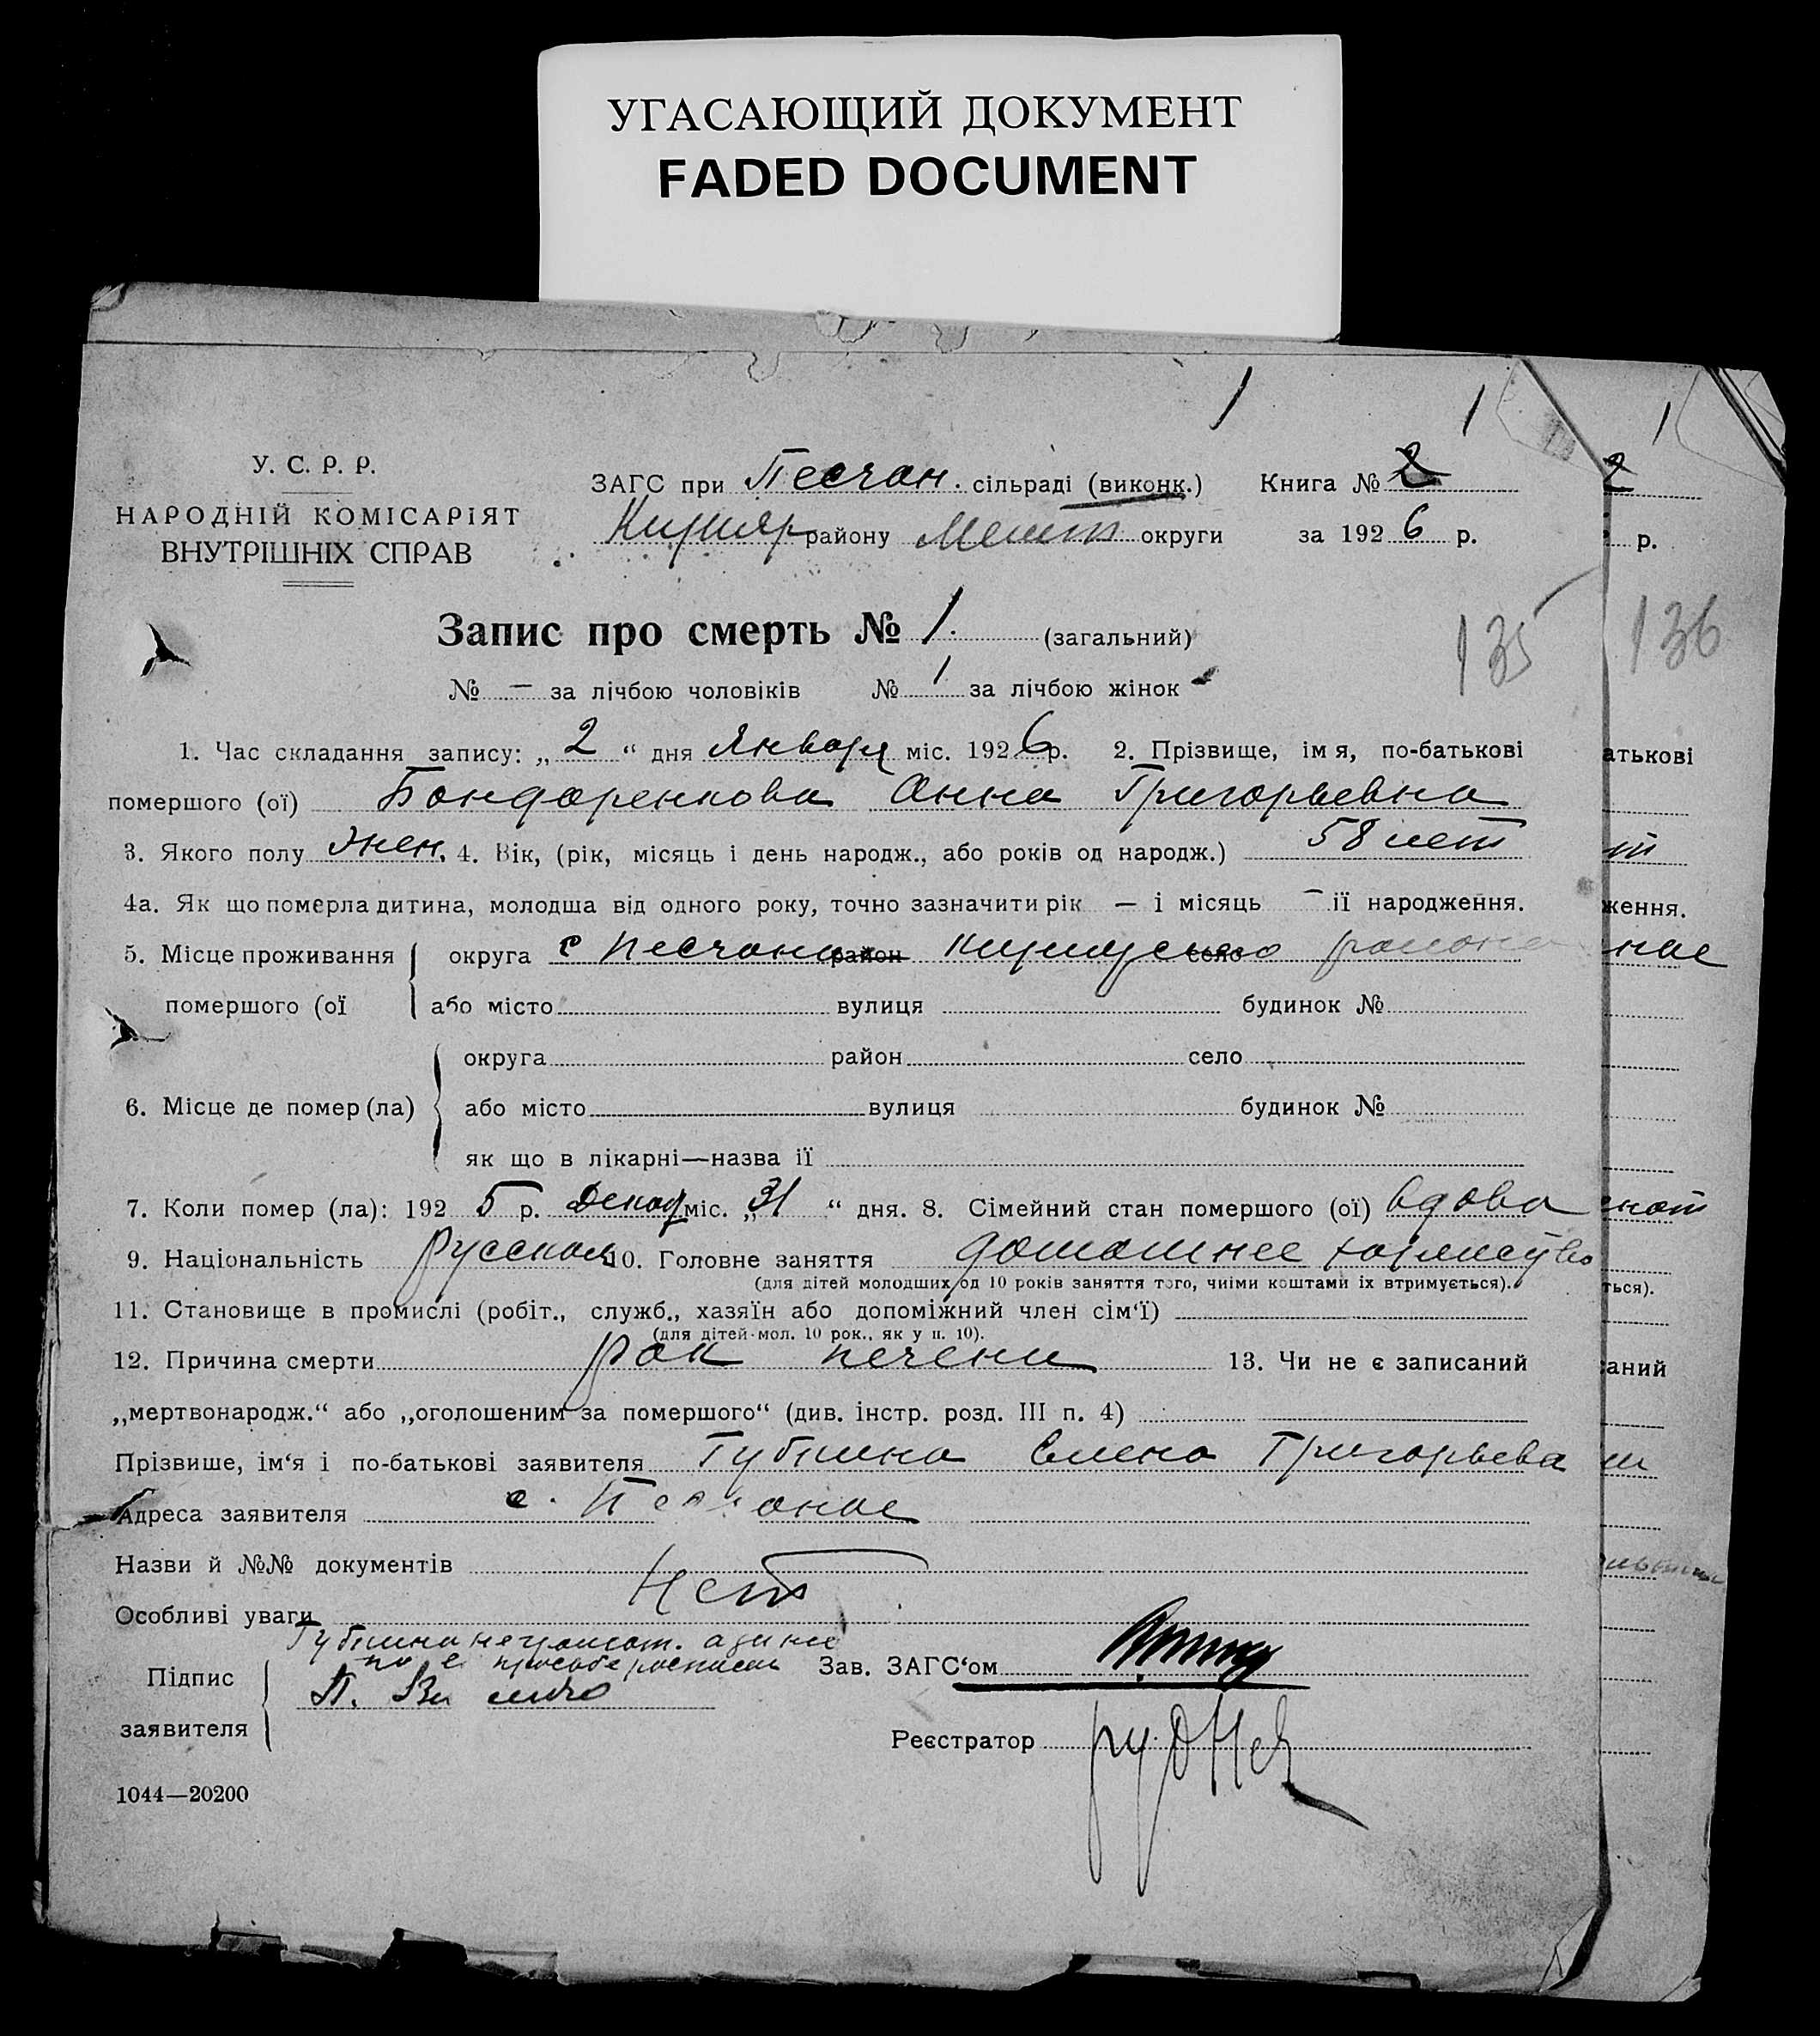 УГАСАЮЩИЙ ДОКУМЕНТ
FADED DOCUMENT
1 1 1
У. С. Р. Р.
НАРОДНІЙ КОМІСАРІЯТ
ВНУТРІШНІХ СПРАВ
ЗАГС при Песчан. сільраді (виконк.) Книга № 2
району округи за 1926 р.
2
р.
Запис про смерть № 1. (загальний)
135 136
№ — за лічбою чоловіків № 1 за лічбою жінок
1. Час складання запису: „ 2 “ дня Января міс. 1926 р. 2. Прізвище, імя, по-батькові
атькові
помершого (ої) Бондаренкова Анна Григорьевна
3. Якого полу жен. 4. Вік, (рік, місяць і день народж., або років од народж.) 58 лет
т
4а. Як що померла дитина, молодша від одного року, точно зазначити рік — і місяць — ії народження.
ження.
5. Місце проживання округа с Песчаное район село района
ное
помершого (ої або місто вулиця будинок №
округа район село
6. Місце де помер (ла) або місто вулиця будинок №
як що в лікарні—назва ії
7. Коли помер (ла): 1925 р. Декаб міс. „ 31 “ дня. 8. Сімейний стан помершого (ої) вдова
9. Національність русская 10. Головне заняття домашнее хозяйство
(для дітей молодших од 10 років заняття того, чиіми коштами іх втримується).
ться).
11. Становище в промислі (робіт., служб., хазяїн або допоміжний член сім‘ї)
(для дітей мол. 10 рок., як у п. 10).
12. Причина смерти рак печени 13. Чи не є записаний
саний
„мертвонародж.“ або „оголошеним за помершого“ (див. інстр. розд. III п. 4)
Прізвише, ім‘я і по-батькові заявителя Губкина Елена Григорьева
Адреса заявителя с. Песчаное
Назви й №№ документів
Нет
Особливі уваги
Губкина неграмот. а за нее
по ее просьбе расписался
Підпис
заявителя
Зав. ЗАГС‘ом
Реєстратор
1044—20200